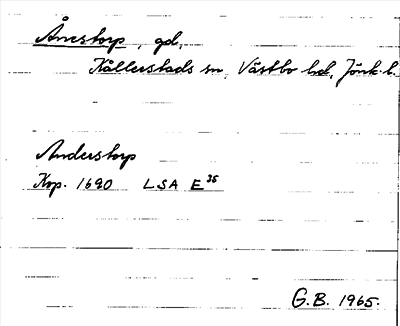 Årnstorp, gd,
Källerstads sn, Västbo hd, Jönk. l.
Anderstorp
Kop. 1690 LSA E 35
G.B. 1965.